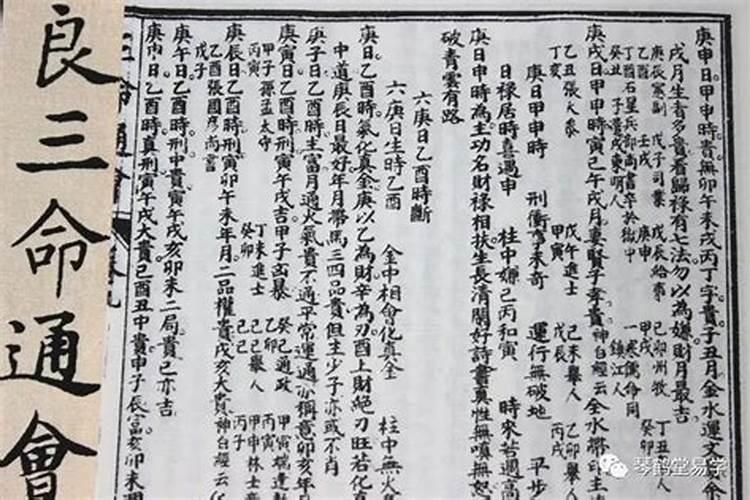 庚申日甲申時貴無卯午未戌丙丁字貴子丑月金水運文
戌月生者多貴看歸祿有七法勿以為嫌財月最吉
庚辰憲副 戊子司業 戊辰給事 己卯州牧 丁丑
丁酉 壬戌 庚申 甲戌 癸卯
丁酉石星兵部尚書卒於獄中 一寒儒命同
癸丑 子貴戌東明人 鎮江人
庚戌日甲申時刑寅巳午戌月妻賢子孝貴神白經云全水帶印主
乙丑張大參 戊午進士 己未舉人 乙卯舉
丁亥 甲寅 戊辰 丙戌
庚日甲申時 刑衝 未奇 運行無破地 平步
日祿居時喜遇申 柱中嫌巳丙和寅 時來若遇高
庚日申時為主功名財祿相扶生長清閑好詩書真性無嗔無怒
破青雲有路
六庚日乙酉時斷
六庚日生時乙酉 金中相會化真金 柱中無火
庚日乙酉時氣化真金庚以乙為財辛為刃酉上財絕刃旺若化真
中道庚辰日最好年月帶馬三四品貴但主少子亦或不肖
庚子日乙酉時主富月通火氣貴不通平常運通亦稱意卯亥年月
庚寅日乙酉時刑寅午戌吉甲子凶暴 癸巳通政 甲寅
甲子孫孟太守 乙卯 丙寅
丙寅 丁未進士 己巳舉人 甲申林士
癸卯 己巳 丙子
庚辰日乙酉時刑寅卯午未年月二品權貴戌亥大貴神白經云
乙酉張國彥尚書
戊子
庚午日乙酉時刑中貴寅午戌亥卯未二局貴巳亦吉
庚申日乙酉時貞刑寅午戌大貴己酉丑中貴申子辰富亥卯未
三命通會 卷九
良三命通會
琴鹤堂易学